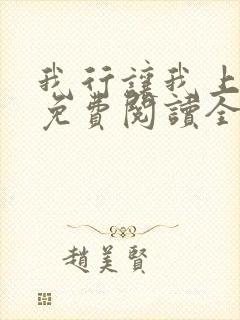 我行讓我上
免費閱讀全
趙美賢